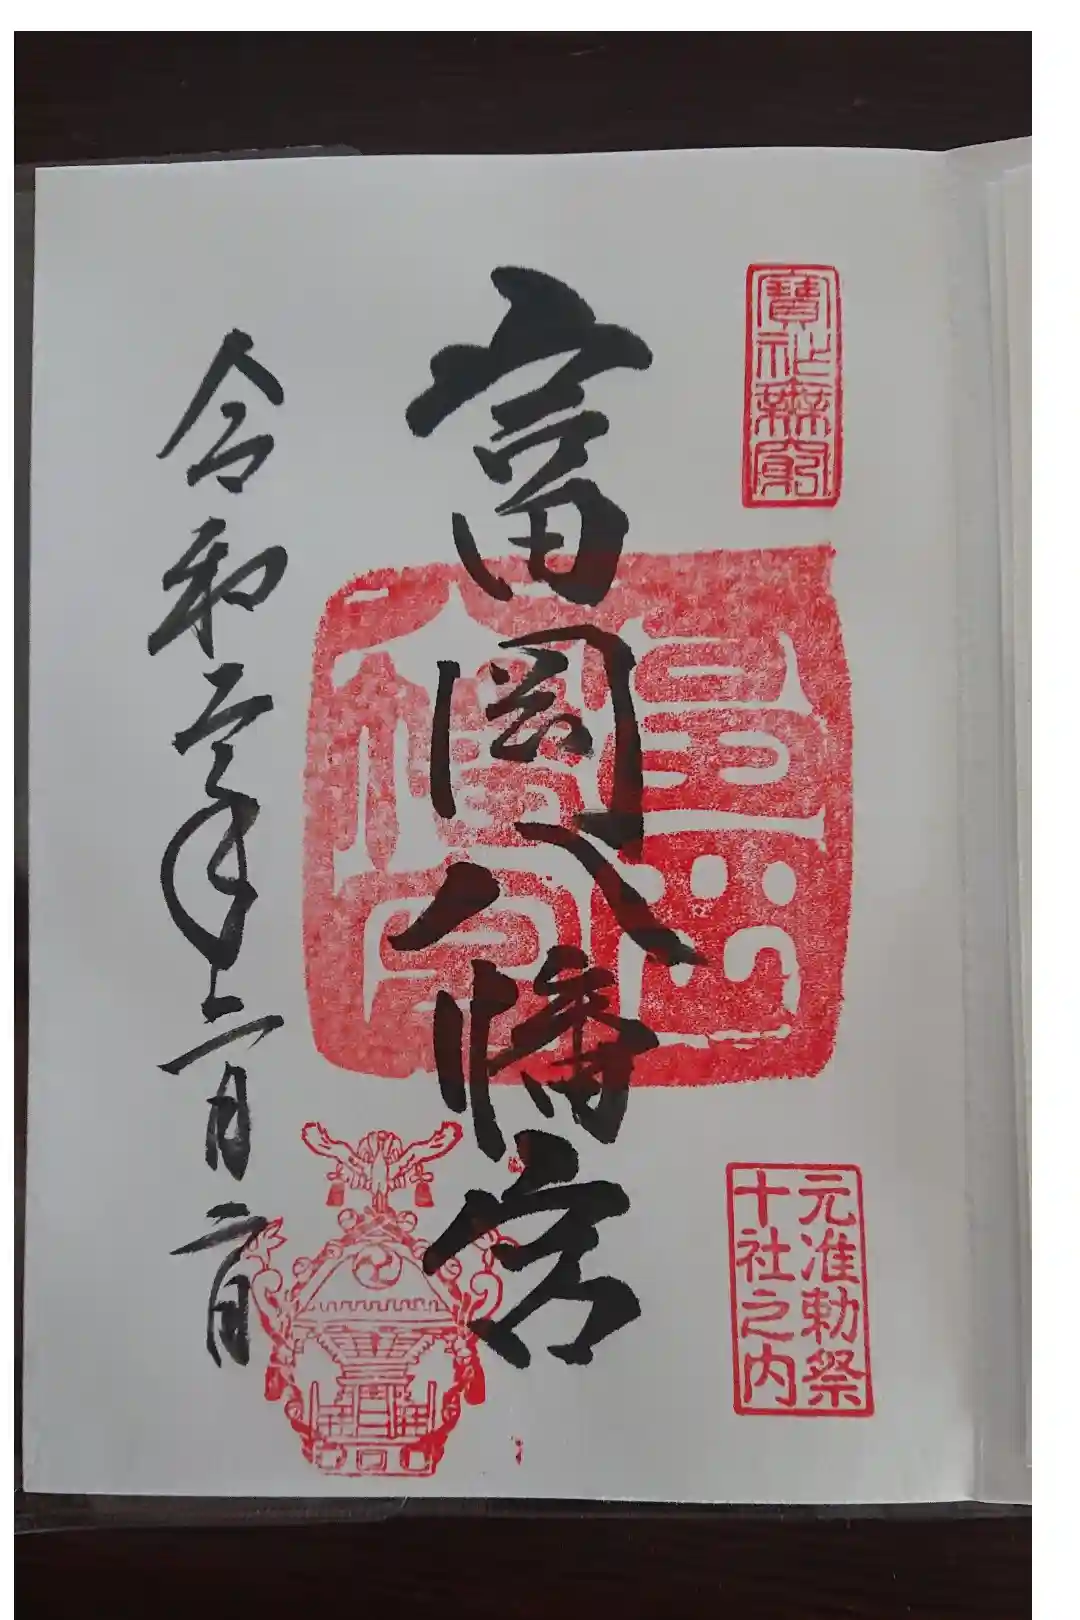 寶祚無窮
元准勅祭
十社之内
富岡八幡宮
令和年二月二日